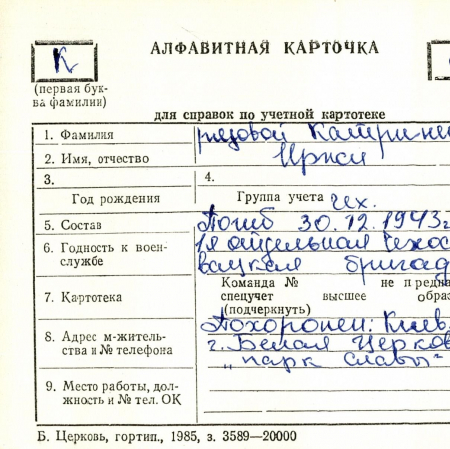 К
АЛФАВИТНАЯ КАРТОЧКА
(первая бук-
ва фамилии)
для справок по учетной картотеке
1. Фамилия рядовой Катрине
2. Имя, отчество Иржи
3. 4.
Год рождения Группа учета чех.
5. Состав Погиб 30.12.1943г
6. Годность к воен-
службе
1я отдельная Чехос
вацкая бригад
7. Картотека
Команда № не предна
спецучет высшее обра
(подчеркнуть)
8. Адрес м-житель-
ства и № телефона
Похоронен: Киев.
г. Белая Церков
„парк Славы"
9. Место работы, дол-
жность и № тел. ОК
Б. Церковь, гортип., 1985, з. 3589—20000